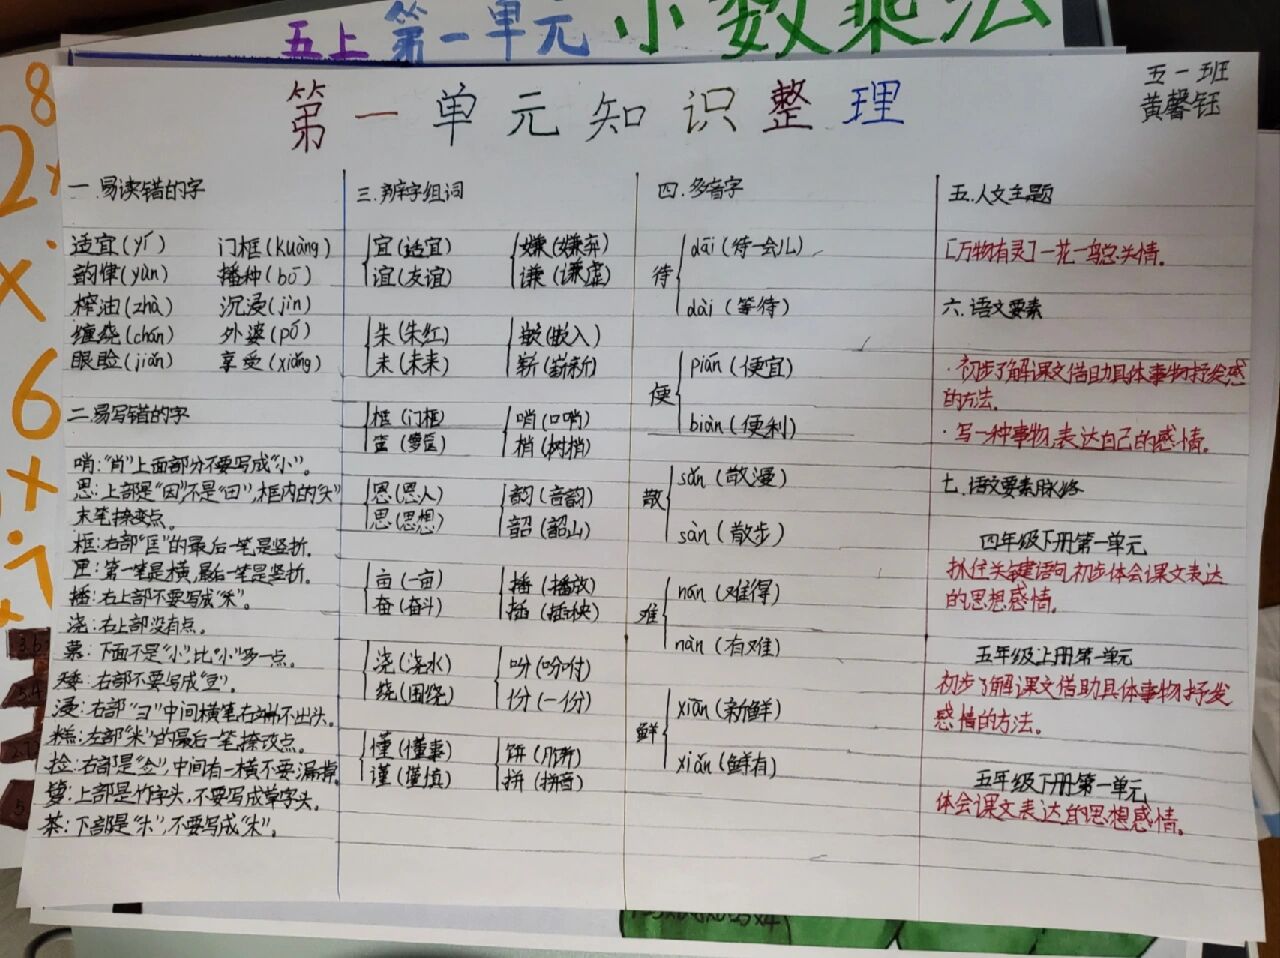 五上 第一单元 小数乘法
第一单元知识整理
五一班
黄馨钰
一.易读错的字
适宜(yí) 门框(kuàng)
韵律(yùn) 播种(bō)
榨油(zhà) 沉浸(jìn)
缠绕(chán) 外婆(pó)
眼睑(jiǎn) 享受(xiǎng)
二.易写错的字
哨:“肖”上面部分不要写成“小”。
恩:上部是“因”,不是“田”,框内的“头”
末笔捺变点。
框:右部“匡”的最后一笔是竖折。
匣:第一笔是横,最后一笔是竖折。
播:右上部不要写成“米”。
浇:右上部没有点。
慕:下面不是“小”,比“小”多一点。
矮:右部不要写成“豆”。
浸:右部“彐”中间横笔右端不出头。
糕:左部“米”的最后一笔捺改点。
捡:右部是“佥”,中间有一横不要漏掉。
箩:上部是竹字头,不要写成草字头。
茶:下部是“朩”,不要写成“木”。
三.辨字组词
宜(适宜) 嫌(嫌弃)
谊(友谊) 谦(谦虚)
朱(朱红) 嵌(嵌入)
未(未来) 崭(崭新)
框(门框) 哨(口哨)
筐(箩筐) 梢(树梢)
恩(恩人) 韵(音韵)
思(思想) 韶(韶山)
亩(一亩) 播(播放)
奋(奋斗) 插(插秧)
浇(浇水) 吩(吩咐)
绕(围绕) 份(一份)
懂(懂事) 饼(月饼)
谨(谨慎) 拼(拼音)
四.多音字
待
dāi(待一会儿)
dài(等待)
便
pián(便宜)
biàn(便利)
散
sǎn(散漫)
sàn(散步)
难
nán(难得)
nàn(有难)
鲜
xiān(新鲜)
xiǎn(鲜有)
五.人文主题
[万物有灵]一花一鸟总关情。
六.语文要素
·初步了解课文借助具体事物抒发感
的方法。
·写一种事物,表达自己的感情。
七.语文要素脉络
四年级下册第一单元
抓住关键语句,初步体会课文表达
的思想感情。
五年级上册第一单元
初步了解课文借助具体事物抒发
感情的方法。
五年级下册第一单元
体会课文表达的思想感情。